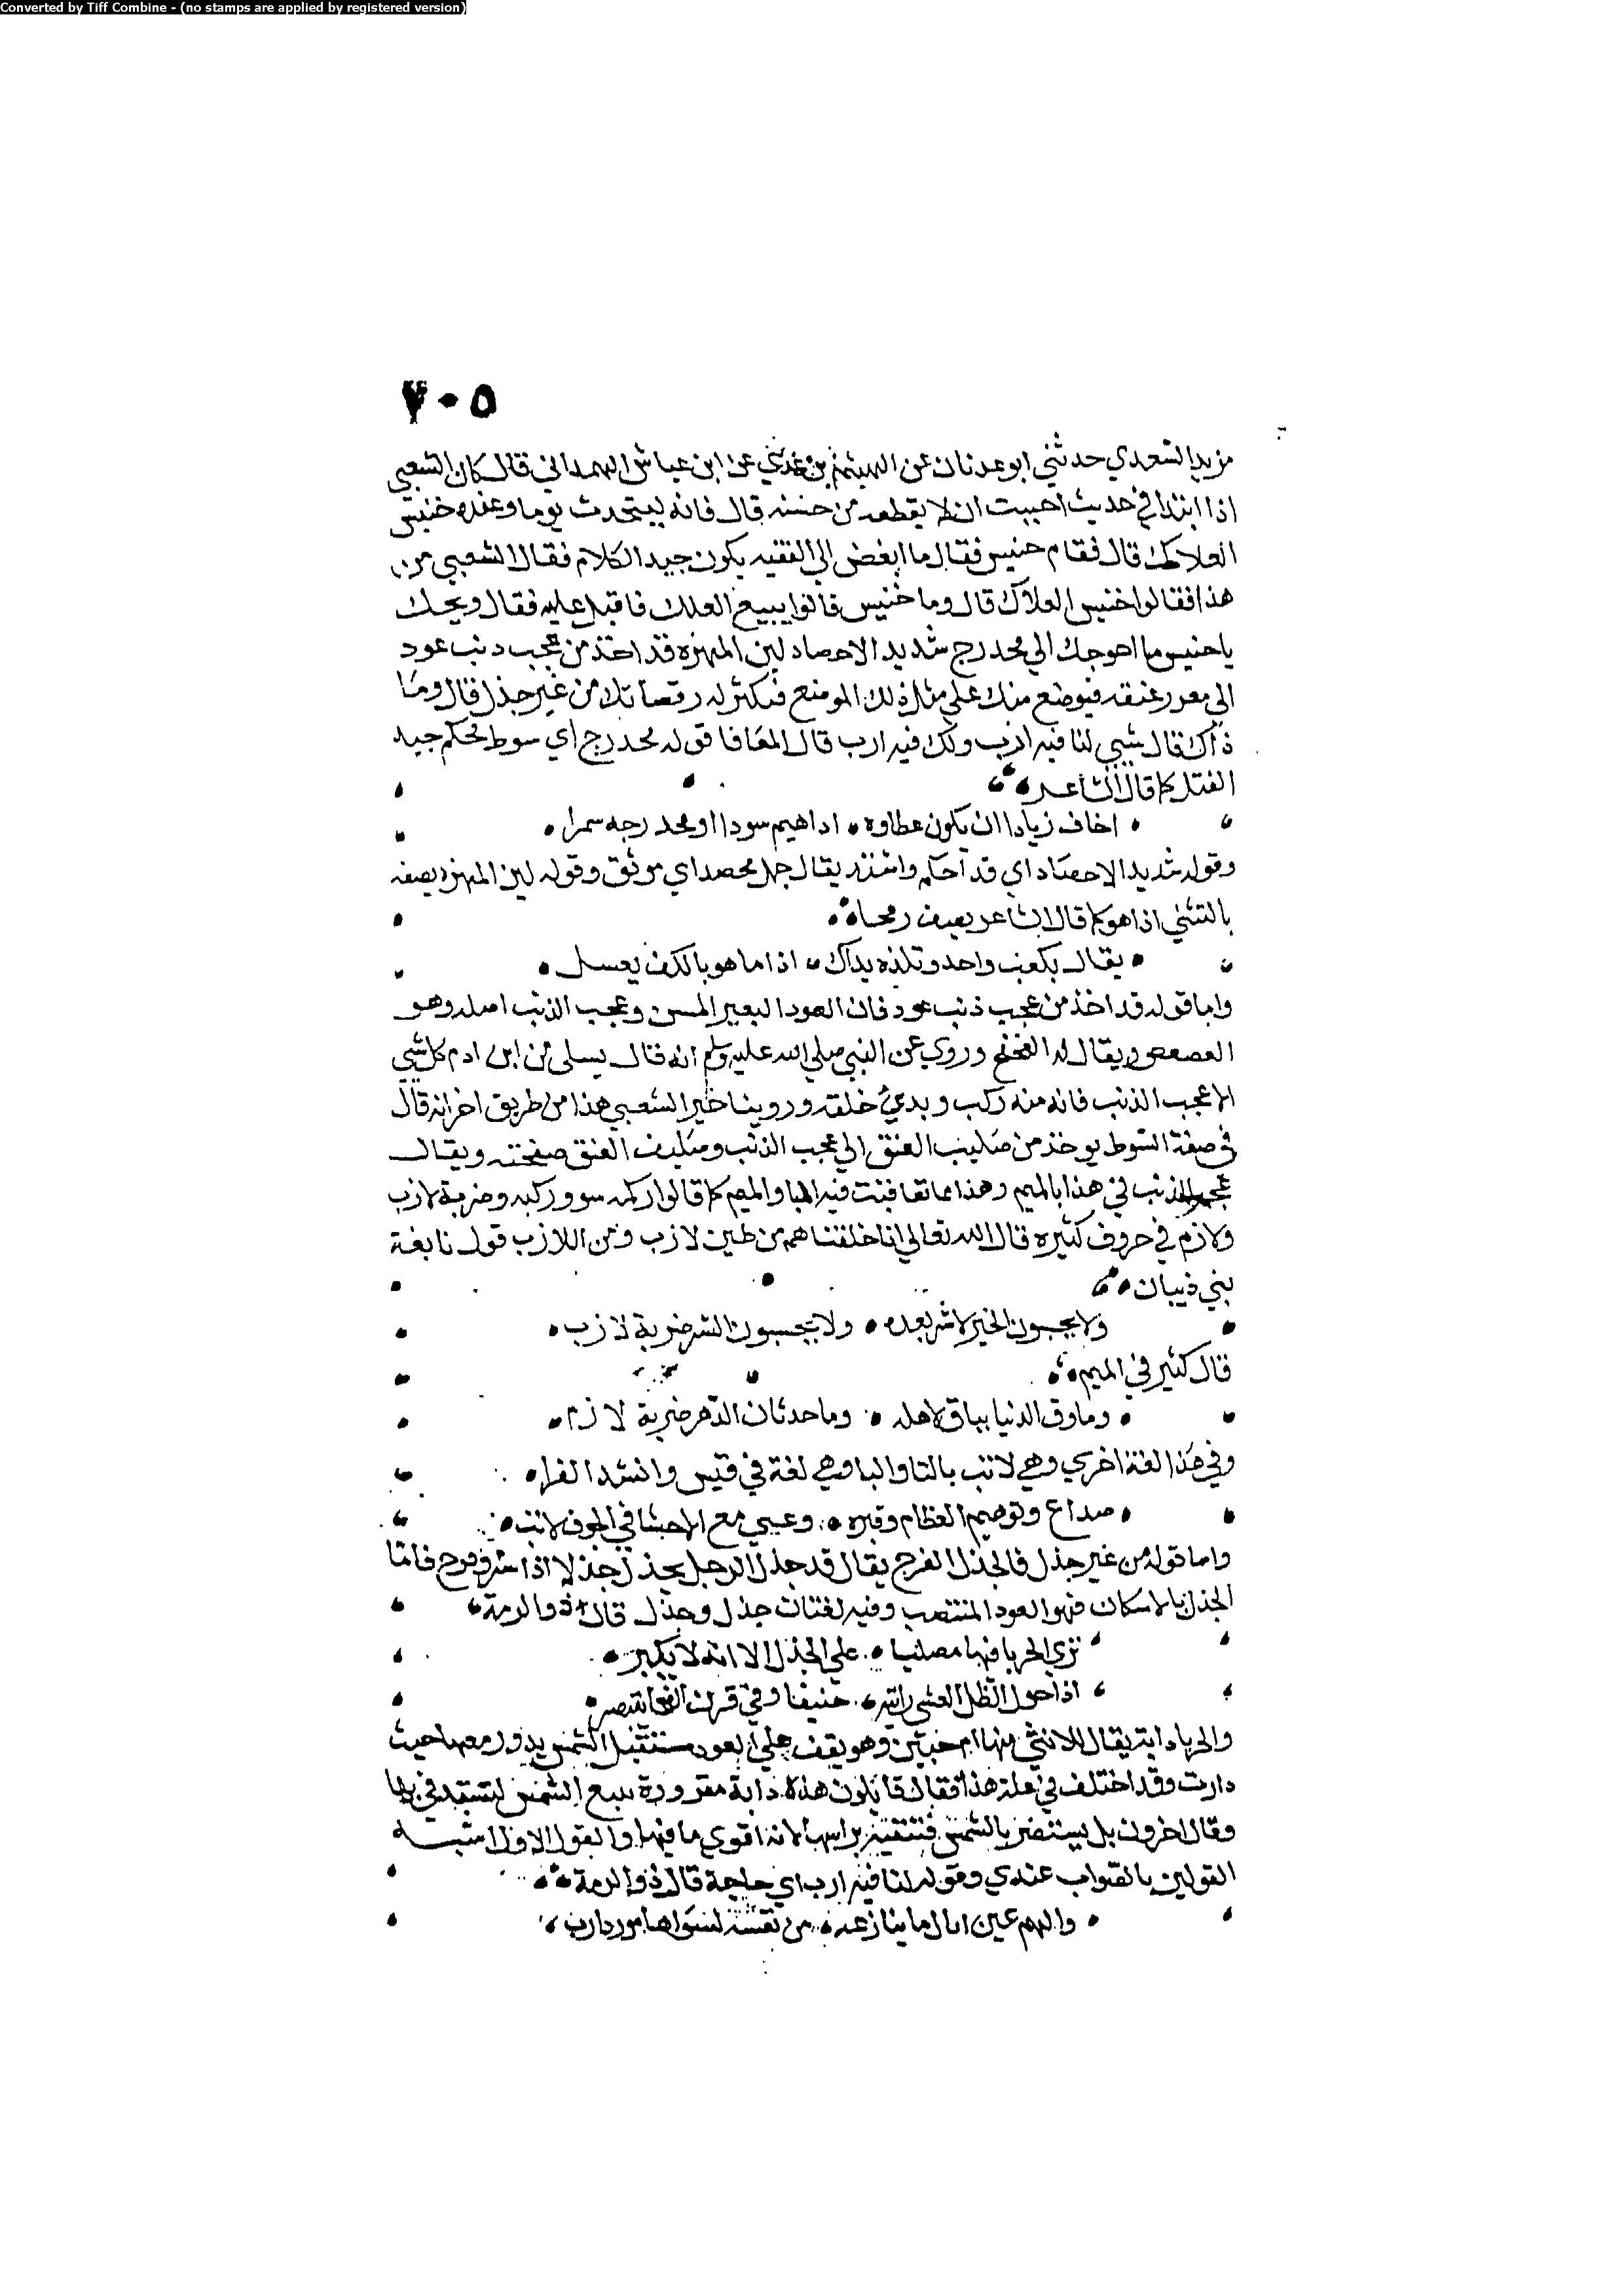 Converted by Tiff Combine - (no stamps are applied by registered version)
٧٠٥
مزيد السعدي حدثني ابو عدنان عن الهيثم بن عدي عن ابن عياش الهمداني قال كان الشعبي
اذا ابتدا في حديث احببت ان لا يقطعه من حسنه قال فانه ليتحدث يوما وعنده خنيس
العلاك قال فقام خنيس فقال ما ابغض الي الفقيه يكون جيد الكلام فقال الشعبي من
هذا فقالوا خنيس العلاك قال وما خنيس قالوا يبيع العلك فاقبل عليه فقال ويحك
يا خنيس ما احوجك الي محدرج شديد الاحصاد لين المهزه قد اخذ من عجب ذنب عود
الى مغرز عنقه فيوضع منك علي مثل ذلك الموضع فتكثر له رقصاتك من غير جذل قال وما
ذاك قال شيي لنا فيه ارب ولك فيه ارب قال المعافا قوله محدرج اي سوط محكم جيد
الفتل كما قال الشاعر
اخاف زيادا ان يكون عطاوه اداهيم سودا او محدرجه سمرا
وقوله شديد الاحصاد اي قد احكم واشتد يقال حبل محصد اي موثق وقوله لين المهزه يصفه
بالتثني اذا هو كما قال الشاعر يصف رمحا
يقال بكعب واحد وتلذه يداك اذا ما هو بالكف يعسل
واما قوله قد اخذ من عجب ذنب عود فان العود البعير المسن وعجب الذنب اصله وهو
العصعص ويقال له وروي عن النبي صلي الله عليه وسلم انه قال يبلى من ابن ادم كل شيي
الا عجب الذنب فانه منه ركب وبدئ خلقه وروينا خبر الشعبي هذا من طريق اخر انه قال
في صفة السوط يوخذ من صليف العنق الي عجب الذنب وصليف العنق صفحته ويقال
عجم الذنب في هذا بالميم وهذا مما تعاقبت فيه البا والميم كما قالوا اركمه سو وركبه وضربة لازب
ولازم في حروف كثيره قال الله تعالي انا خلقناهم من طين لازب ومن اللازب قول نابغة
بني ذبيان
ولا يحسبون الخير لا شر بعده ولا يحسبون الشر ضربة لازب
قال كثير في الميم
وما ورق الدنيا بباق لاهله وما حدثان الدهر ضربة لازم
وفي هذا لغة اخري وهي لاتب بالتا والبا وهي لغة في قيس وانشد الفرا
صداع وتوصيم العظام وفتره وعيي مع الاحشا في الجوف لاتب
واما قوله من غير جذل فالجذل الفرح يقال قد جذل الرجل يجذل جذلا اذا سر وفرح فاما
الجذل بالاسكان فهو العود المنتصب وفيه لغتان جذل وجذل قال ذو الرمة
تري الحربا فيها مصلبا علي الجذل الا انه لا يكبر
اذا حول الظل العشي رايته حنيفا وفي قرن الضحا يتنصر
والحربا دابة يقال للانثي منها ام حبين وهو يقف علي العود مستقبل الشمس يدور معها حيث
دارت وقد اختلف في علة هذا فقال قايلون هذه دابة مقرورة تتبع الشمس
وقال اخرون بل يستضر بالشمس فتتقيه براسها لانه اقوي ما فيها والقول الاول اشبه
القولين بالصواب عندي وقوله لنا فيه ارب اي حاجة قال ذو الرمة
والهم عين اثال ما ينازعه من نفسه لسواها مورد ارب